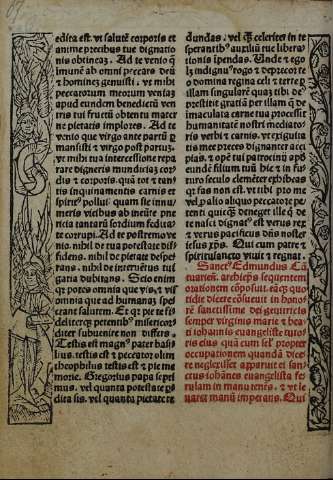 edita est. vt salutē corporis et
anime precibus tue dignatio
nis obtineā. Ad te venio q̄
imunē ab omni peccato deū
et hominē genuisti. vt mihi
peccatorum meorum veniaz
apud eundem benedictū ven
tris tui fructū obtentu mater
ne pietatis implores. Ad te
venio que virgo ante partū
mansisti et virgo post partuz.
vt mihi tua intercessione repa
rare digneris mundiciaz cor
dis et corporis. quā tot et tan
tis inquinamentis carnis et
spiritꝰ pollui. quam sic innu
meris vicibus ab ineūte pue
ricia tantarū sordium feditate
corrupi. Ad te postremo ve
nio. nihil de tua potestate dif
fidens. nihil de pietate despe
rans. nihil de interuētu tuo
gatia dubitans. Scio enim
qꝫ potes omnia que vis. et vis
omnia que ad humanaꝫ spe
crant salutem. Et qꝫ pie te fi
deliterqꝫ petentibꝰ misericor
diter subuenire non differs.
Testis est magnꝰ pater basi
lius. testis est et peccator olim
theophilus testis est et pie me
morie. Gregorius papa septi
mus. vel quanta potestate p̄
dita sis. vel quanta pietate et
dundas. vel qꝫ celeriter in te
sperantibꝰ auxiliū tue libera
tionis ipendas. Unde et ego
lꝫ indignꝰ rogo et deprecor te
o domina regina celi et terre p
illam singularē quaꝫ tibi de
prestitit gratiā per illam que de
immaculata carne tua processit
humanitate nostri mediato
ris verbi et carnis. vt exigui
mis mei preces dignanter acci
pias. et opē tui patrocinij apd
eundē filium tuū hic et in fu
turo seculo clemēter exhibeas
qꝫ fas non est. vt tibi pro me
vel p alio aliquo peccatore pe
tenti quicqꝫ deneget ille qui de
te nasci dignatꝰ est verus rex
et verus pacificus dn̄s noster
iesus xp̄s. Qui cum patre et
spiritusancto viuit et regnat.
Sanctꝰ Edmundus Cā
tuarien. archieps̄ sequentem
orationem cōposuit. eāqꝫ quo
tidie dicere cōsueuit in hono
rē sanctissime dei genitricis
semper virginis marie et be
ati iohannis euangeliste tuto
ris eius quā cum semel propter
occupationem quandā dice
re neglexisset apparuit ei san
ctus iohānes euangelista fe
rulam in manu tenēs. et vt le
uaret manū imperans. Qui